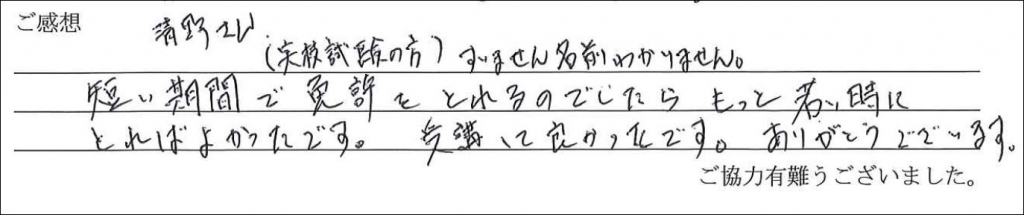 ご感想
清野さん
(実技試験の方)すいません名前わかりません。
短い期間で免許をとれるのでしたらもっと若い時に
とればよかったです。 受講して良かったです。ありがとうございます。
ご協力有難うございました。